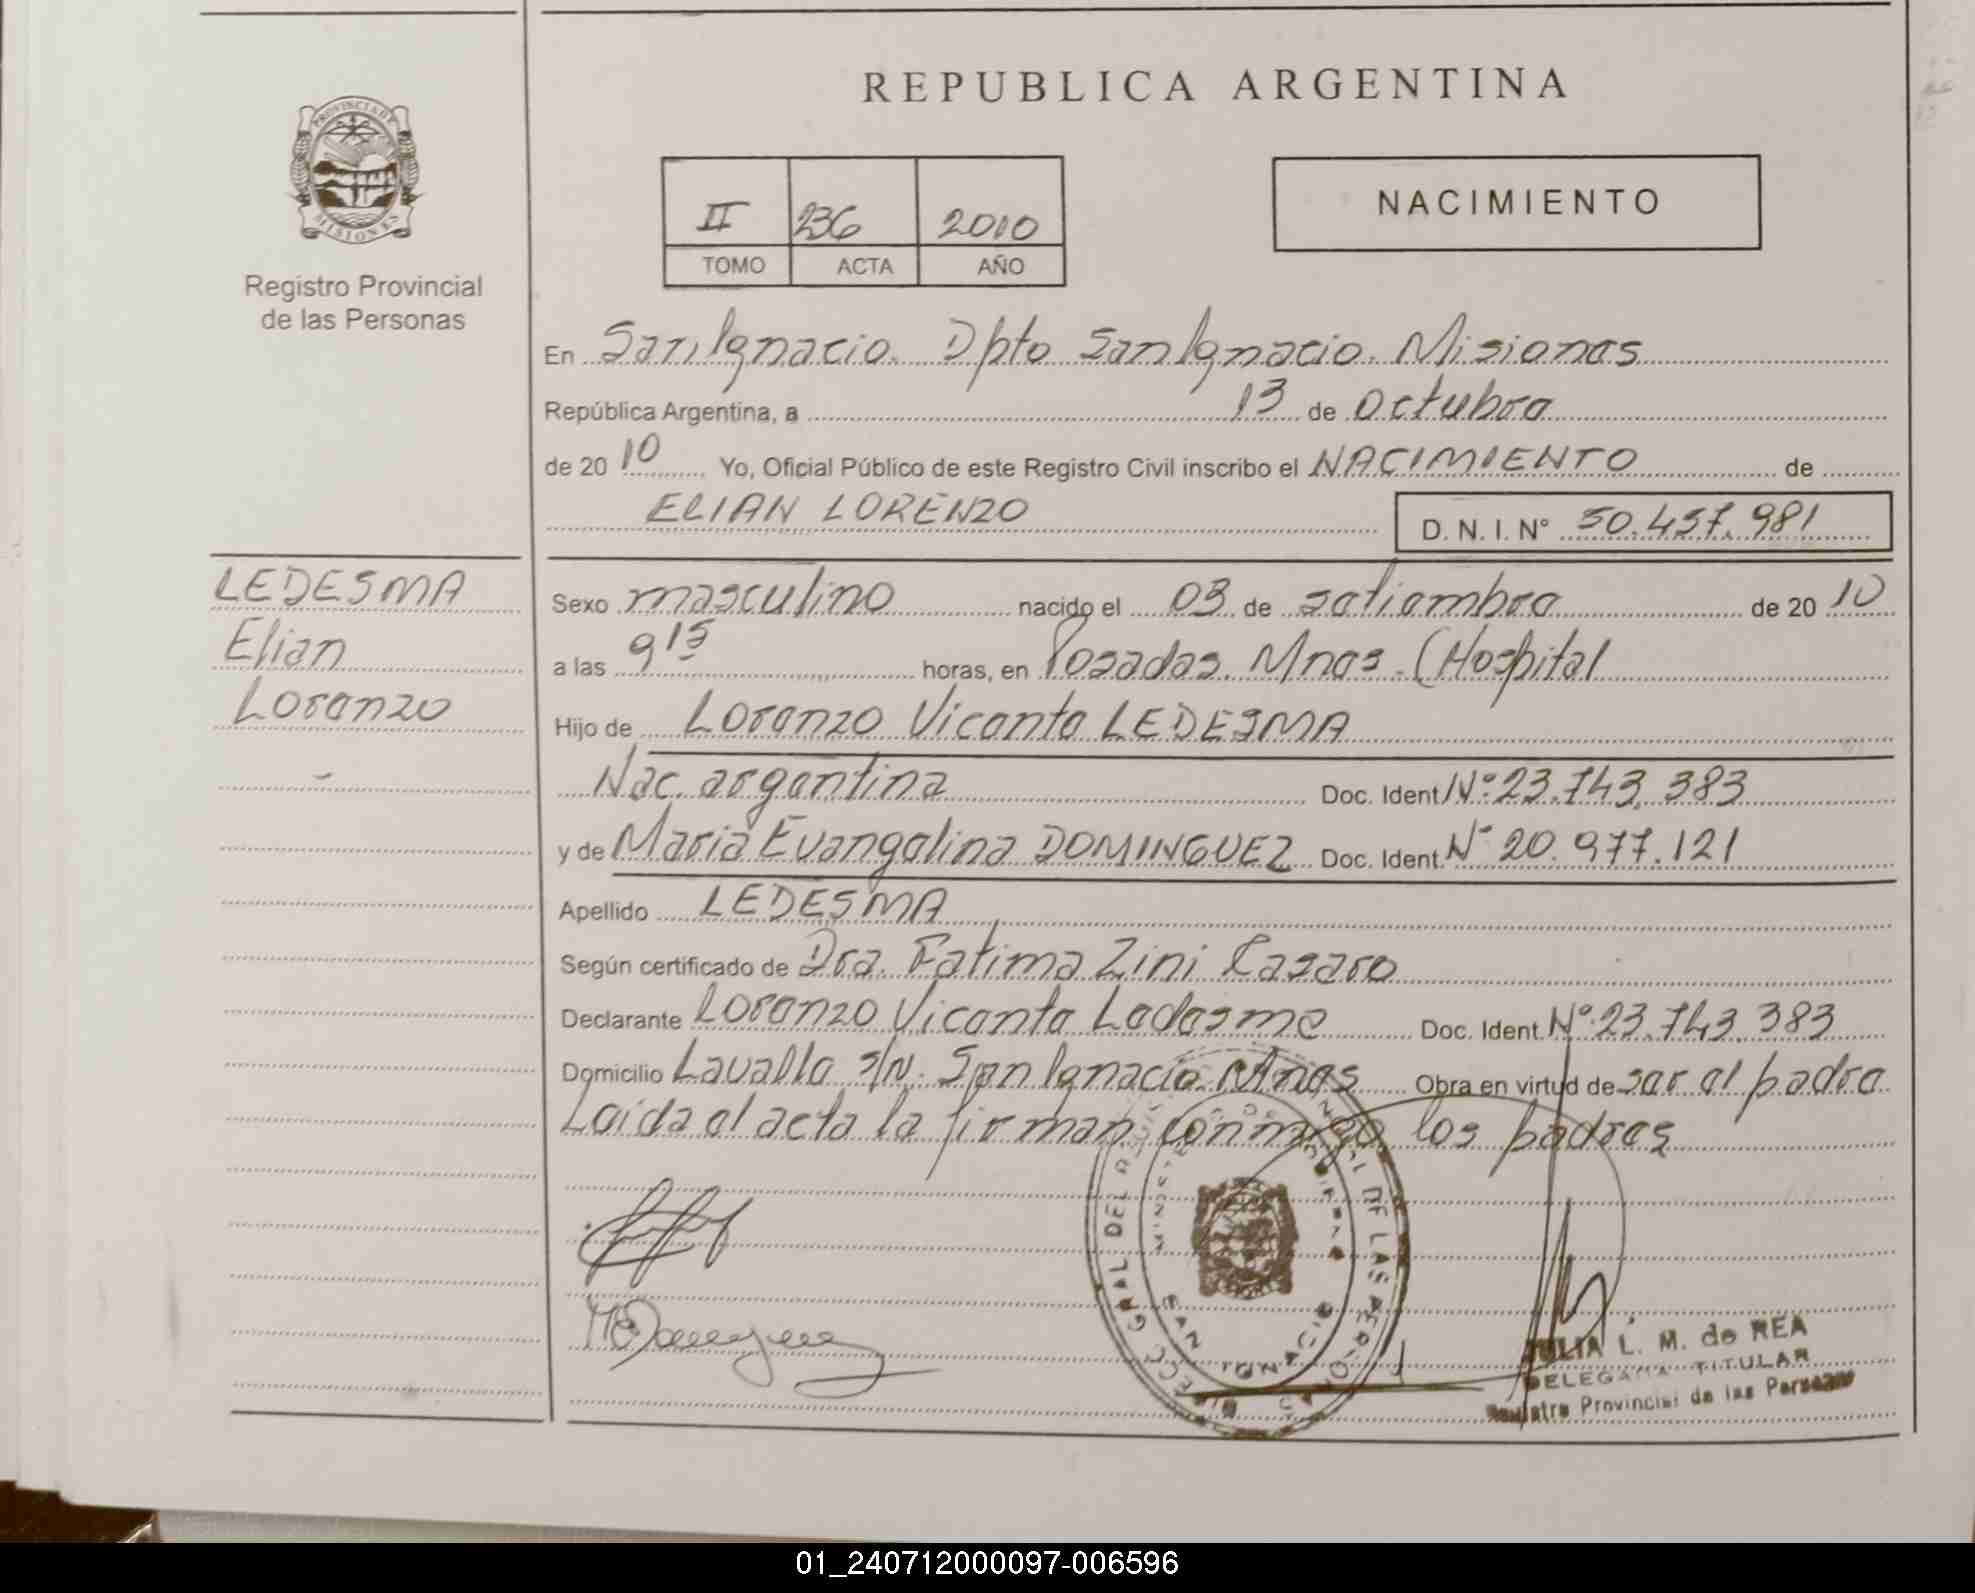 REPUBLICA ARGENTINA
PROVINCIA DE
MISIONES
Registro Provincial
de las Personas
II 236 2010
TOMO ACTA AÑO
NACIMIENTO
En San Ignacio. Dpto San Ignacio. Misiones
República Argentina, a 13 de octubre
de 2010 Yo, Oficial Público de este Registro Civil inscribo el NACIMIENTO de
ELIAN LORENZO D. N. I. N° 50.457.981
LEDESMA
Elian
Lorenzo
Sexo masculino nacido el 03 de setiembre de 2010
a las 9 15 horas, en Posadas. Mnes. (Hospital
Hijo de Lorenzo Vicente LEDESMA
Nac. argentina Doc. Ident N° 23.743.383
y de Maria Evangelina DOMINGUEZ Doc. Ident. N° 20.977.121
Apellido LEDESMA
Según certificado de Dra. Fatima Zini
Declarante Lorenzo Vicente Ledesma Doc. Ident. N° 23.743.383
Domicilio Lavalle s/N. San Ignacio Mnes Obra en virtud de ser el padre
Leida el acta la firman conmigo los padres
GRAL DEL
DE LAS PERSONAS
SAN IGNACIO
L. M. de REA
DELEGADA TITULAR
Registro Provincial de las Personas
01_240712000097-006596